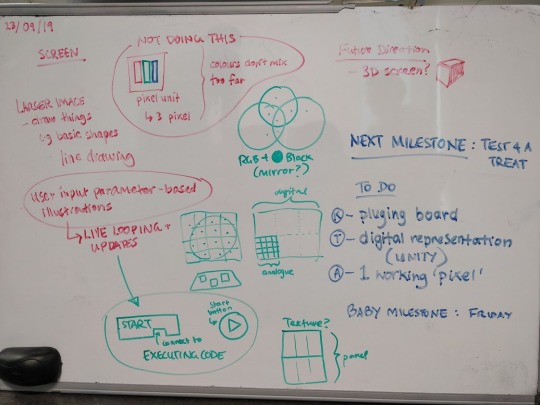 23/09/19
SCREEN
NOT DOING THIS
colours don't mix
too far
pixel unit
↳ 3 pixel
LARGER IMAGE
- draw things
eg basic shapes
line drawing
User input parameter-based
illustrations
↳ LIVE LOOPING +
UPDATES
START
connect to
EXECUTING CODE
Start
button
RGB + Black
(mirror?)
digital
analogue
Texture?
panel
Future Direction
- 3D screen?
NEXT MILESTONE : TEST 4 A
TREAT
TO DO
K - pluging board
T - digital representation
(UNITY)
A - 1 working 'pixel'
BABY MILESTONE : FRIDAY